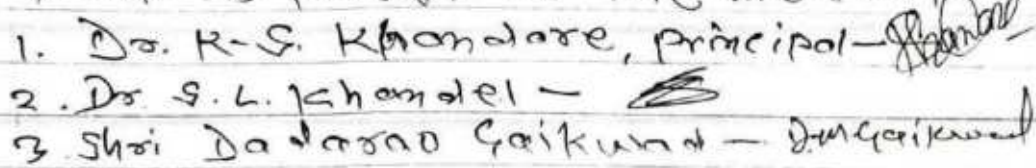 1. Dr. K.S. Khandare, principal -
2. Dr S.L. Khandel -
3 Shri Dadarao Gaikwad - D.M Gaikwad